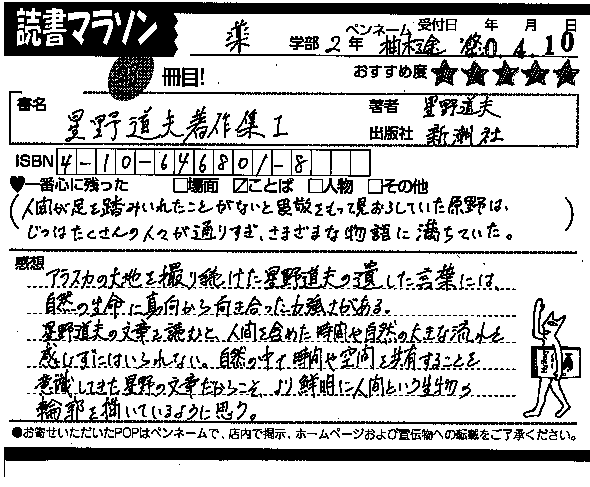 読書マラソン
薬 学部 2年 ペンネーム 受付日 年 月 日
0.4.10
冊目!
おすすめ度 ★★★★★
書名 星野道夫著作集1
著者 星野道夫
出版社 新潮社
ISBN 4-10-646801-8
♥一番心に残った □場面 ☑ことば □人物 □その他
(人間が足を踏みいれたことがないと畏敬をもって見おろしていた原野は、
じつはたくさんの人々が通りすぎ、さまざまな物語に満ちていた。)
感想
アラスカの大地を撮り続けた星野道夫の遺した言葉には、
自然の生命に真向から向き合った力強さがある。
星野道夫の文章を読むと、人間を含めた時間や自然の大きな流れを
感じずにはいられない。自然の中で時間や空間を共有することを
意識してきた星野の文章だからこそ、より鮮明に人間という生物の
輪郭を描いているように思う。
●お寄せいただいたPOPはペンネームで、店内で掲示、ホームページおよび宣伝物への転載をご了承ください。